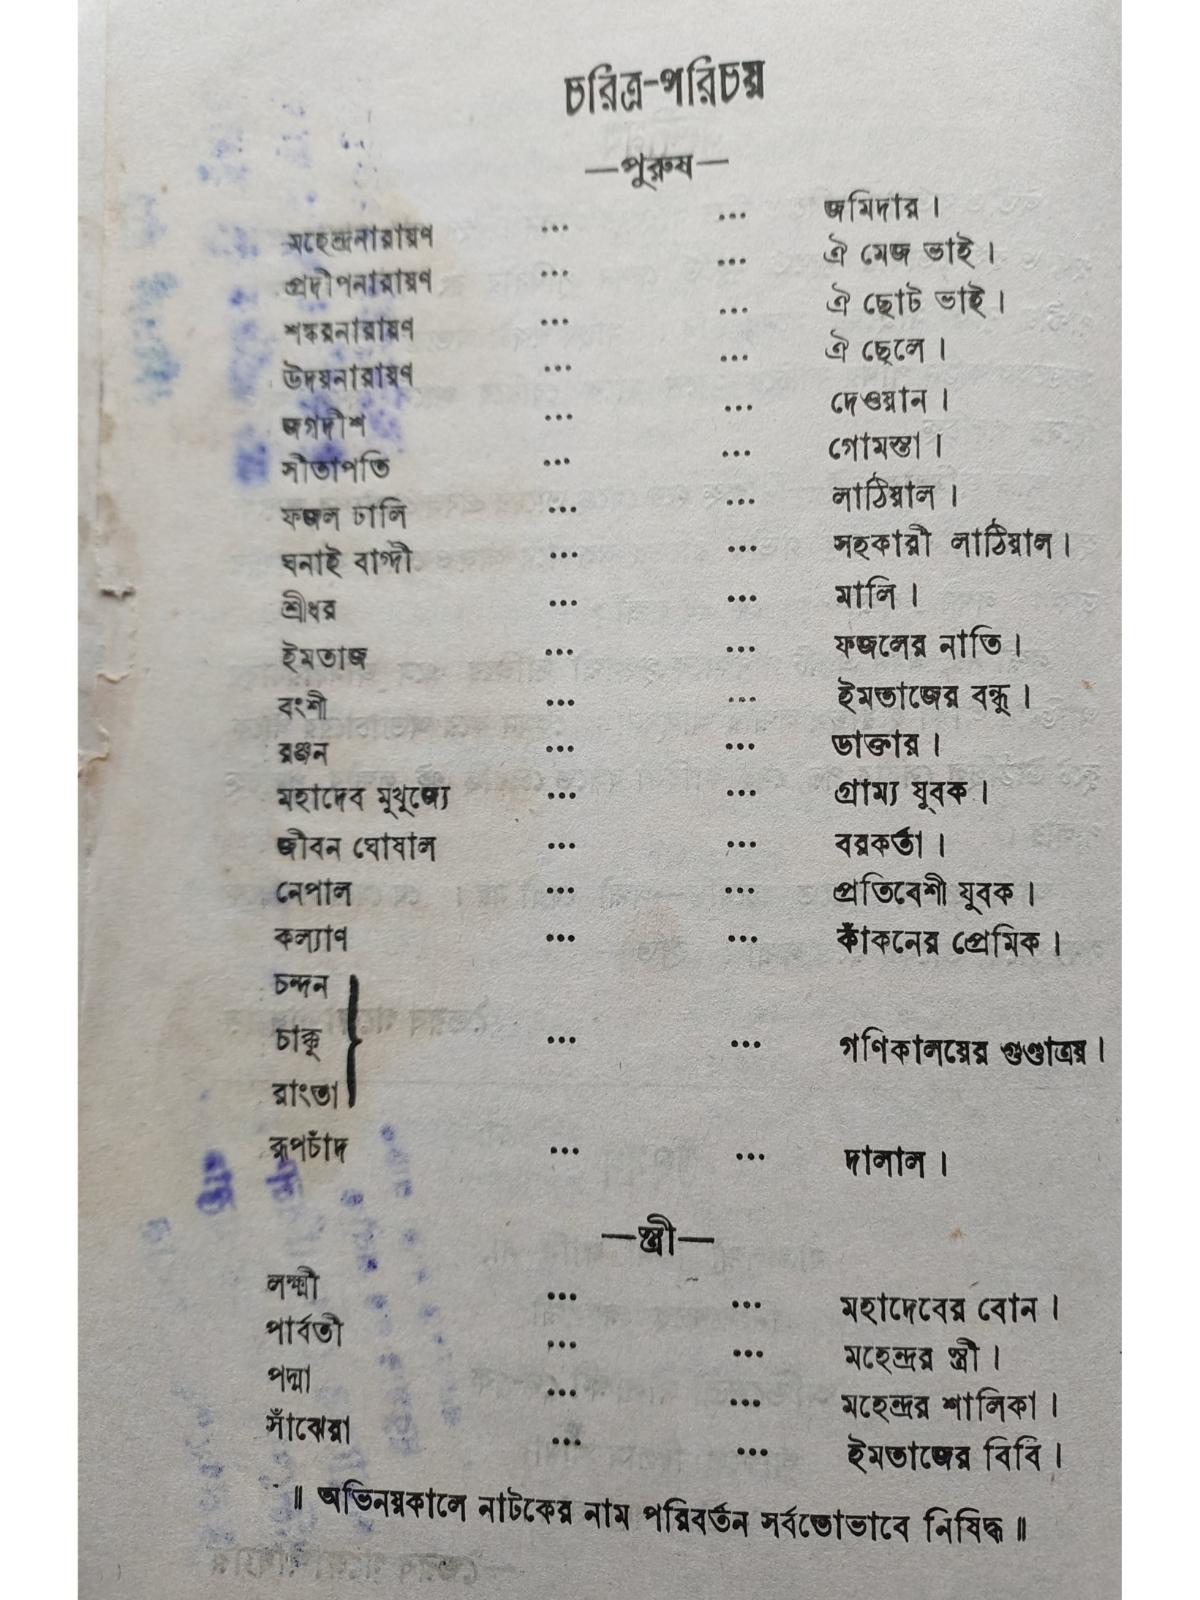 চরিত্র-পরিচয়
—পুরুষ—
মহেন্দ্রনারায়ণ ... ... জমিদার।
প্রদীপনারায়ণ ... ... ঐ মেজ ভাই।
শঙ্করনারায়ণ ... ... ঐ ছোট ভাই।
উদয়নারায়ণ ... ... ঐ ছেলে।
জগদীশ ... ... দেওয়ান।
সীতাপতি ... ... গোমস্তা।
ফজল ঢালি ... ... লাঠিয়াল।
ঘনাই বাগ্দী ... ... সহকারী লাঠিয়াল।
শ্রীধর ... ... মালি।
ইমতাজ ... ... ফজলের নাতি।
বংশী ... ... ইমতাজের বন্ধু।
রঞ্জন ... ... ডাক্তার।
মহাদেব মুখুজ্যে ... ... গ্রাম্য যুবক।
জীবন ঘোষাল ... ... বরকর্তা।
নেপাল ... ... প্রতিবেশী যুবক।
কল্যাণ ... ... কাঁকনের প্রেমিক।
চন্দন
চাক্কু ... ... গণিকালয়ের গুণ্ডাত্রয়।
রাংতা
রূপচাঁদ ... ... দালাল।
—স্ত্রী—
লক্ষ্মী ... ... মহাদেবের বোন।
পার্বতী ... ... মহেন্দ্রর স্ত্রী।
পদ্মা ... ... মহেন্দ্রর শালিকা।
সাঁঝেরা ... ... ইমতাজের বিবি।
॥ অভিনয়কালে নাটকের নাম পরিবর্তন সর্বতোভাবে নিষিদ্ধ ॥